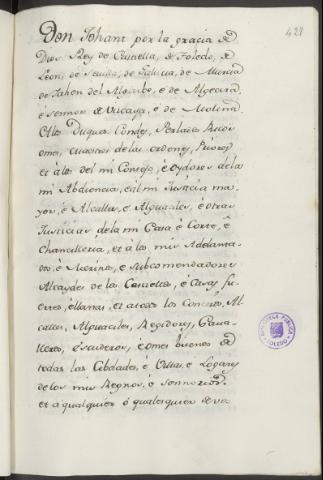 428
Don Johant por la gracia de
Dios Rey de Castella, de Toledo, de
Leon, de Sevilla, de Gallicia, de Murcia
de Jahen del Algarbe, e de Algecira,
é sennor de Vizcaya, é de Molina.
A los Duques Condes, Perlados Ricos
omes, Maestres de las ordenes, Priores
et á los del mi Consejo, é Oydores dela
mi Abdiencia, é al mi Justicia ma-
yor, é Alcalles, é Alguaciles, é otras
Justicias dela mi Casa é Corte, é
Chancilleria, et á los mis Adelanta-
dos, é Merinos, é Subcomendadores
Alcaydes de los Castiellos, é Casas fu-
ertes, é llanas, et atodos los Concejos, Al-
calles, Alguaciles, Regidores, Cava-
lleros, é Escuderos, é omes buenos de
todas las Cibdades, é Villas, é Logares
delos mis Regnos, é Sennorios.
et á qualquier ó qualesquier de vos
BIBLIOTECA PUBLICA
TOLEDO